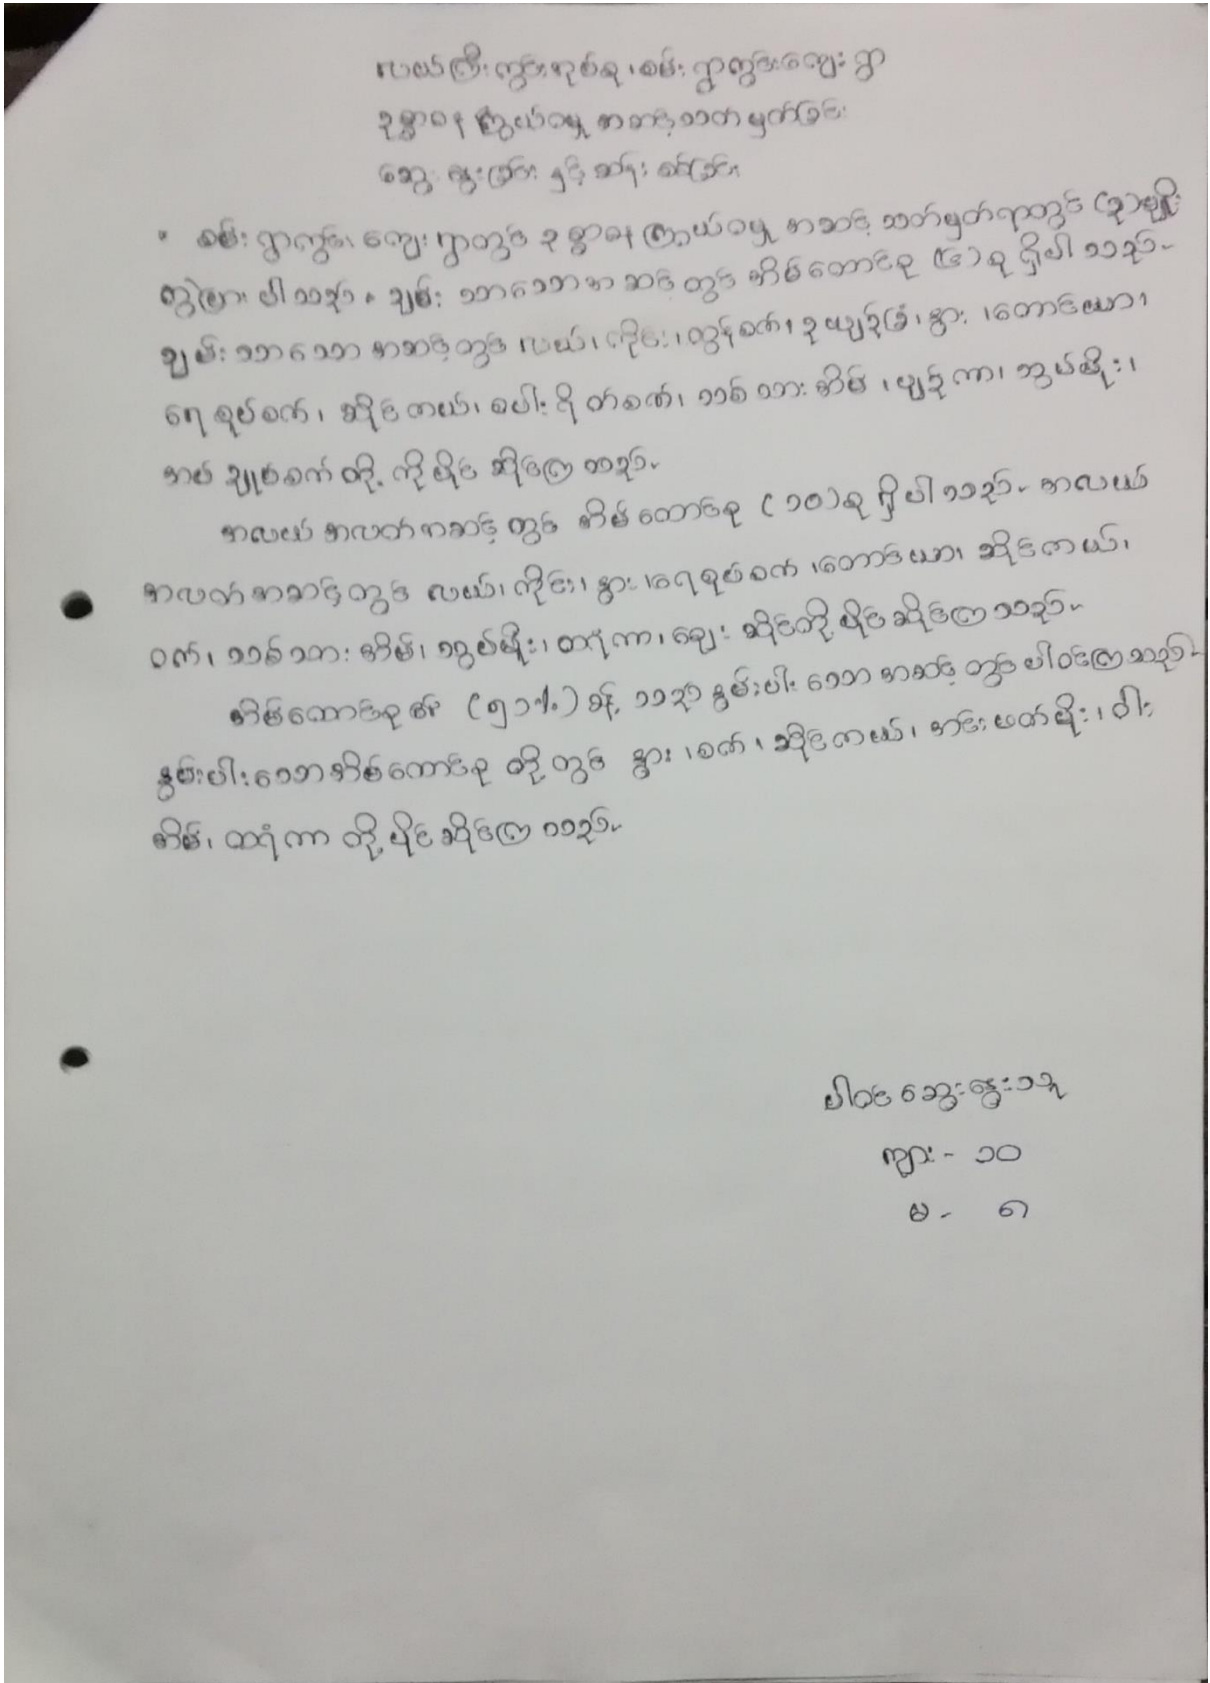 လယ်ကြီးကွင်းအုပ်စု၊ စမ်းရွာကွင်းကျေးရွာ
ဥစ္စာဓနကြွယ်ဝမှု အဆင့်သတ်မှတ်ခြင်း
ဆွေးနွေးခြင်း နှင့် ဆန်းစစ်ခြင်း
• စမ်းရွာကွင်း ကျေးရွာတွင် ဥစ္စာဓနကြွယ်ဝမှု အဆင့် သတ်မှတ်ရာတွင် (၃)မျိုး
ကွဲပြားပါသည်။ ချမ်းသာသောအဆင့်တွင် အိမ်ထောင်စု (၆)စု ရှိပါသည်။
ချမ်းသာသော အဆင့်တွင် လယ်၊ ကိုင်း၊ ထွန်စက်၊ ဥယျာဉ်ခြံ၊ နွား၊ တောင်ယာ၊
ရေစုပ်စက်၊ ဆိုင်ကယ်၊ စပါး ရိတ်စက်၊ သစ်သားအိမ်၊ ပျဉ်ကာ၊ သွပ်မိုး၊
အပ်ချုပ်စက် တို့ကို ပိုင်ဆိုင်ကြသည်။
အလယ်အလတ်အဆင့်တွင် အိမ်ထောင်စု (၁၀)စု ရှိပါသည်။ အလယ်
အလတ်အဆင့်တွင် လယ်၊ ကိုင်း၊ နွား၊ ရေစုပ်စက်၊ တောင်ယာ၊ ဆိုင်ကယ်၊
ဝက်၊ သစ်သားအိမ်၊ သွပ်မိုး၊ ထရံကာ၊ ဈေးဆိုင်တို့ ပိုင်ဆိုင်ကြသည်။
အိမ်ထောင်စု၏ (၅၁%) ခန့် သည် နွမ်းပါးသောအဆင့်တွင် ပါဝင်ကြသည်။
နွမ်းပါးသောအိမ်ထောင်စု တို့တွင် နွား၊ ဝက်၊ ဆိုင်ကယ်၊ အင်းဖက်မိုး၊ ဝါး
အိမ်၊ ထရံကာ တို့ ပိုင်ဆိုင်ကြသည်။
ပါဝင်ဆွေးနွေးသူ
ကျား - ၁၀
မ - ၈